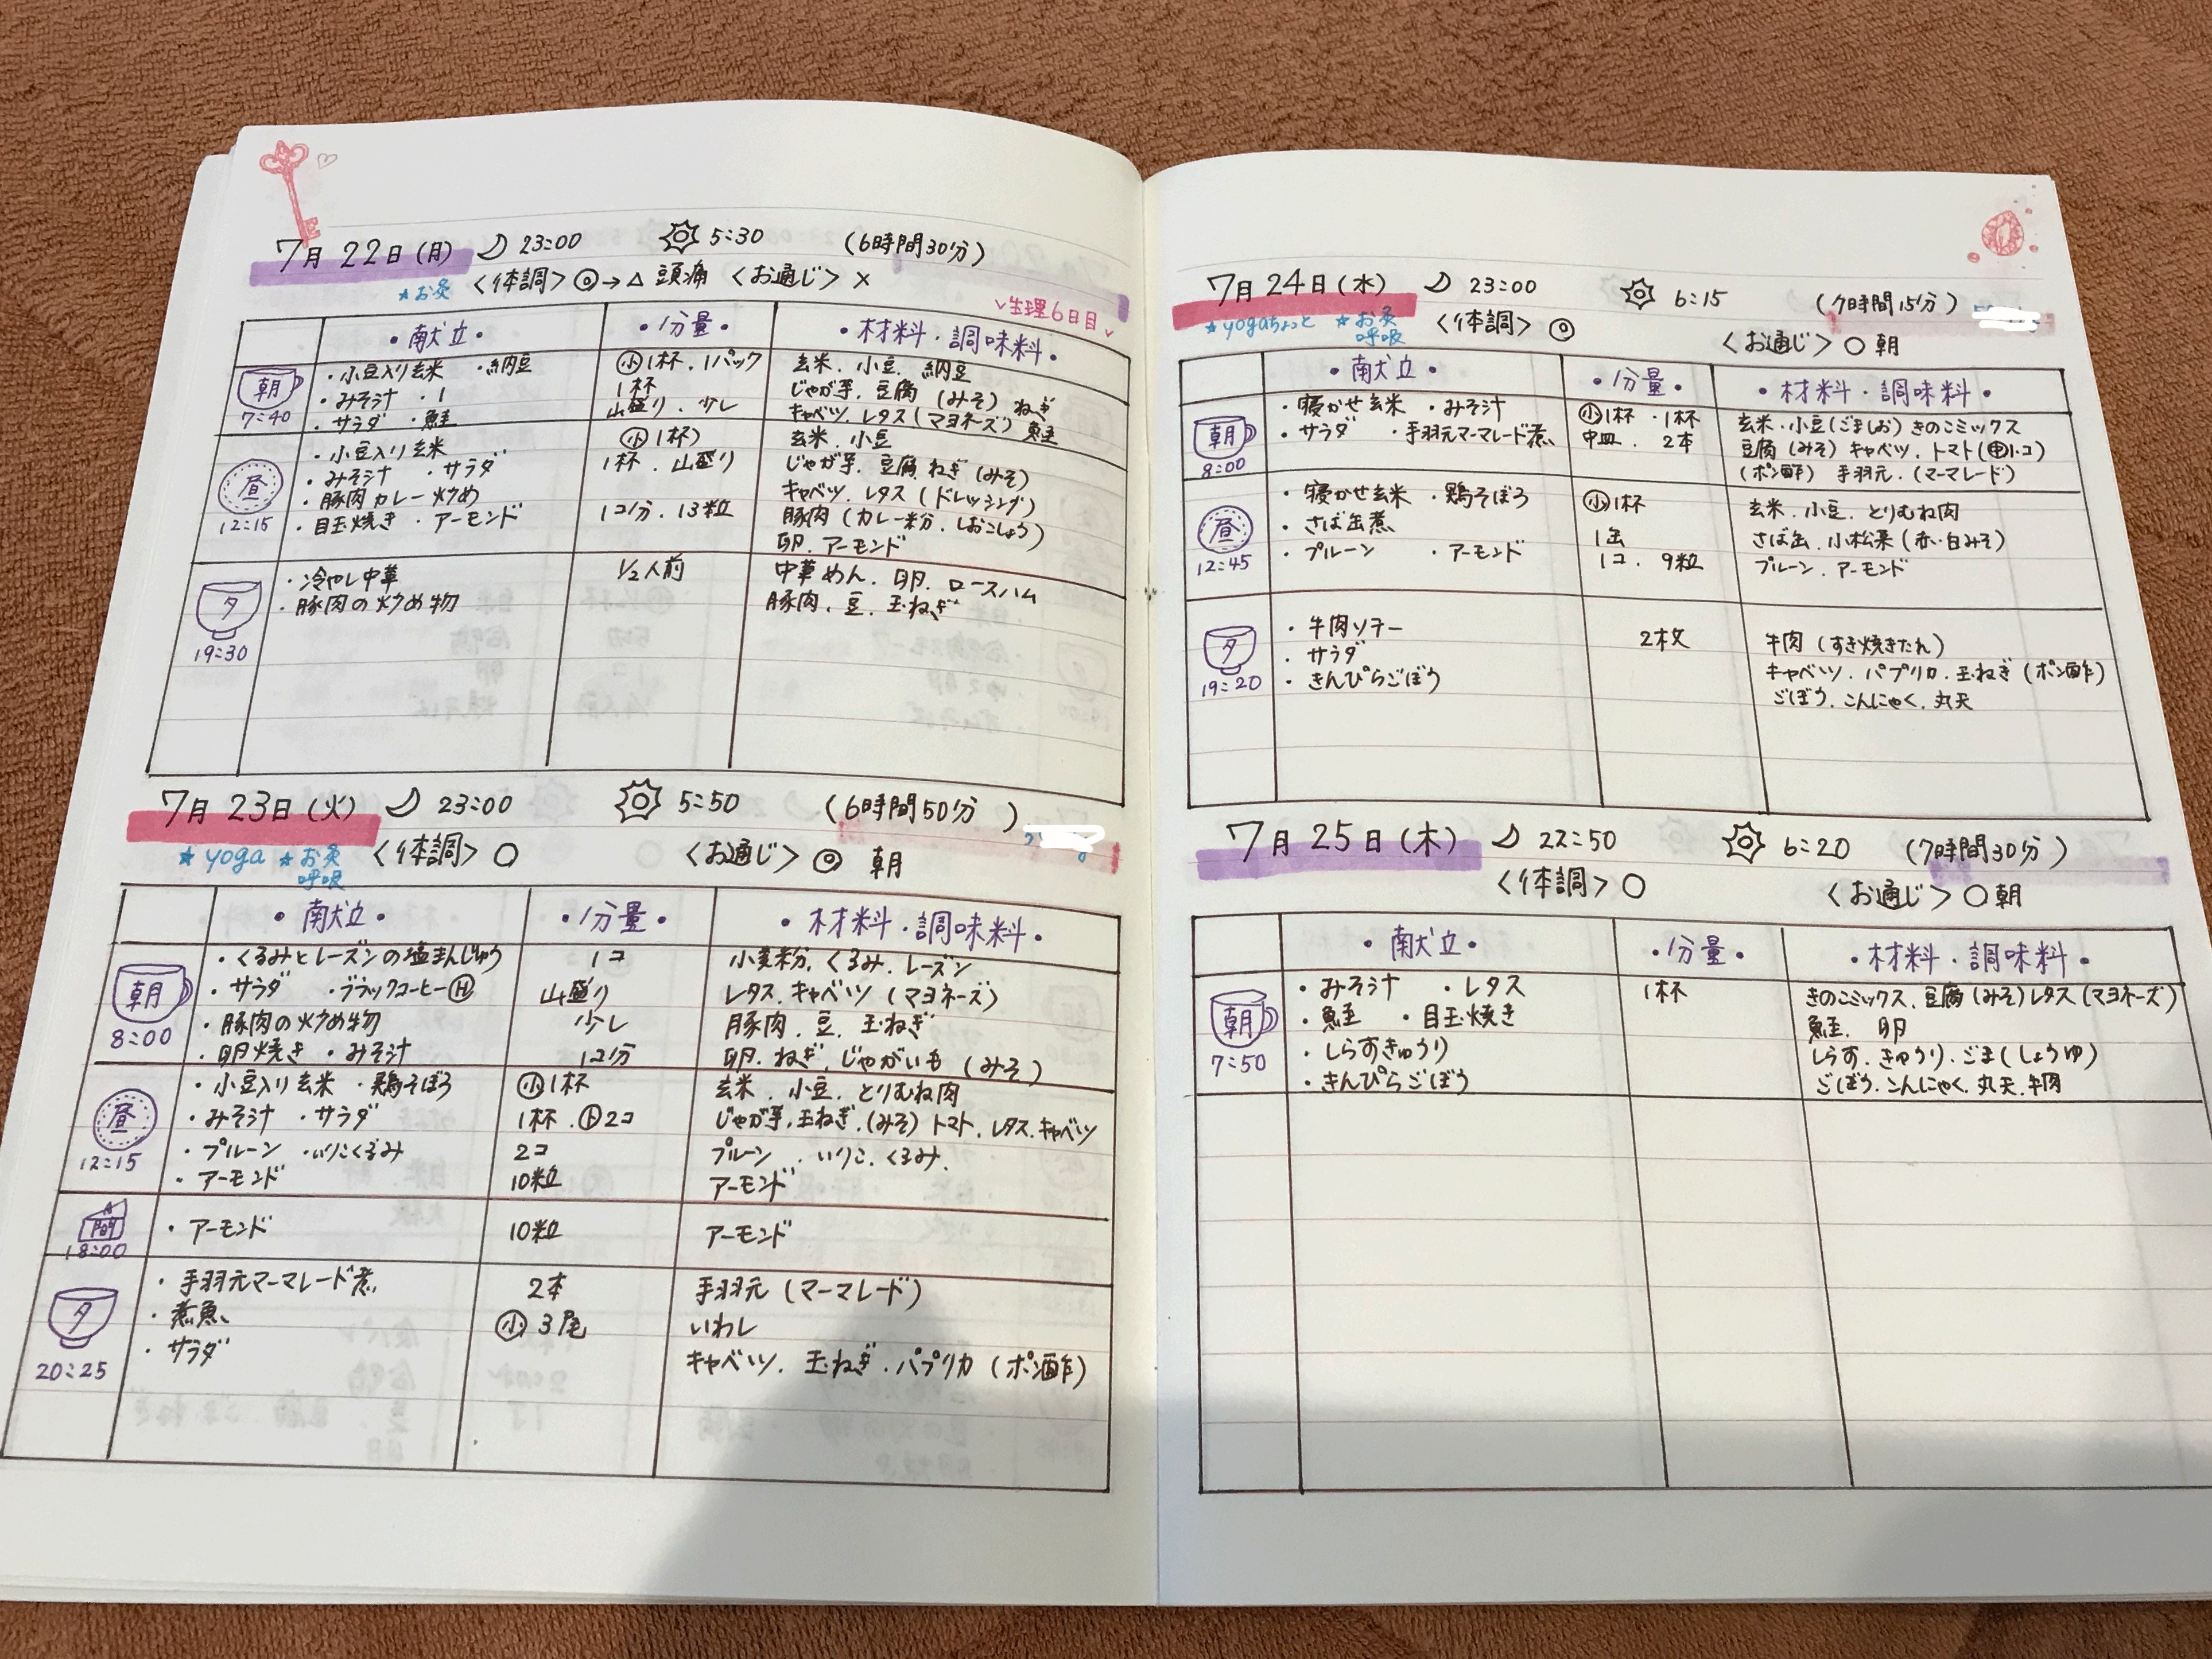 7月22日(月) 23:00 5:30 (6時間30分)
★お灸 <体調>◎→△ 頭痛 <お通じ>×
✓生理6日目✓
・献立・ ・分量・ ・材料・調味料・
朝 ・小豆入り玄米 ・納豆 ㊙小1杯・1パック 玄米・小豆・納豆
・みそ汁・1 1杯 じゃが芋・豆腐(みそ)ねぎ
7:40 ・サラダ ・鮭 山盛り・少し キャベツ・レタス(マヨネーズ)鮭
・小豆入り玄米 小1杯) 玄米・小豆
昼 ・みそ汁 ・サラダ 1杯・山盛り じゃが芋・豆腐 ねぎ(みそ)
・豚肉カレー炒め キャベツ・レタス(ドレッシング)
12:15 ・目玉焼き・アーモンド 1コ分・13粒 豚肉(カレー粉・しおこしょう)
卵・アーモンド
・冷やし中華 1/2人前 中華めん・卵・ロースハム
夕 ・豚肉の炒め物 豚肉・豆・玉ねぎ
19:30
7月23日(火) 23:00 5:50 (6時間50分)
★yoga ★お灸 <体調>○ <お通じ>◎ 朝
呼吸
・献立・ ・分量・ ・材料・調味料・
・くるみとレーズンの塩まんじゅう 1コ 小麦粉・くるみ・レーズン
朝 ・サラダ ・ブラックコーヒーⒽ 山盛り レタス・キャベツ(マヨネーズ)
・豚肉の炒め物 少し 豚肉・豆・玉ねぎ
8:00 ・卵焼き ・みそ汁 1コ分 卵・ねぎ・じゃがいも(みそ)
・小豆入り玄米 ・鶏そぼろ 小1杯 玄米・小豆・とりむね肉
昼 ・みそ汁 ・サラダ 1杯・ト2コ じゃが芋・玉ねぎ・(みそ)トマト・レタス・キャベツ
12:15 ・プルーン ・いりこくるみ 2コ プルーン・いりこ・くるみ・
・アーモンド 10粒 アーモンド
間 ・アーモンド 10粒 アーモンド
18:00
・手羽元マーマレード煮 2本 手羽元(マーマレード)
夕 ・煮魚 小3尾 いわし
20:25 ・サラダ キャベツ・玉ねぎ・パプリカ(ポン酢)
7月24日(水) 23:00 6:15 (7時間15分)
★yogaちょっと ★お灸 <体調>◎
呼吸 <お通じ>○朝
・献立・ ・分量・ ・材料・調味料・
朝 ・寝かせ玄米 ・みそ汁 小1杯・1杯 玄米・小豆(ごましお)きのこミックス
・サラダ ・手羽元マーマレード煮 中皿・2本 豆腐(みそ)キャベツ・トマト(㊥1コ)
8:00 (ポン酢) 手羽元・(マーマレード)
・寝かせ玄米 ・鶏そぼろ 小1杯 玄米・小豆・とりむね肉
昼 ・さば缶煮 1缶 さば缶・小松菜(赤・白みそ)
12:45 ・プルーン ・アーモンド 1コ・9粒 プルーン・アーモンド
・牛肉ソテー 2枚 牛肉(すき焼きたれ)
夕 ・サラダ キャベツ・パプリカ・玉ねぎ(ポン酢)
19:20 ・きんぴらごぼう ごぼう・こんにゃく・丸天
7月25日(木) 22:50 6:20 (7時間30分)
<体調>○ <お通じ>○朝
・献立・ ・分量・ ・材料・調味料・
・みそ汁 ・レタス 1杯 きのこミックス・豆腐(みそ)レタス(マヨネーズ)
朝 ・鮭 ・目玉焼き 鮭・卵
7:50 ・しらすきゅうり しらす・きゅうり・ごま(しょうゆ)
・きんぴらごぼう ごぼう・こんにゃく・丸天・牛肉